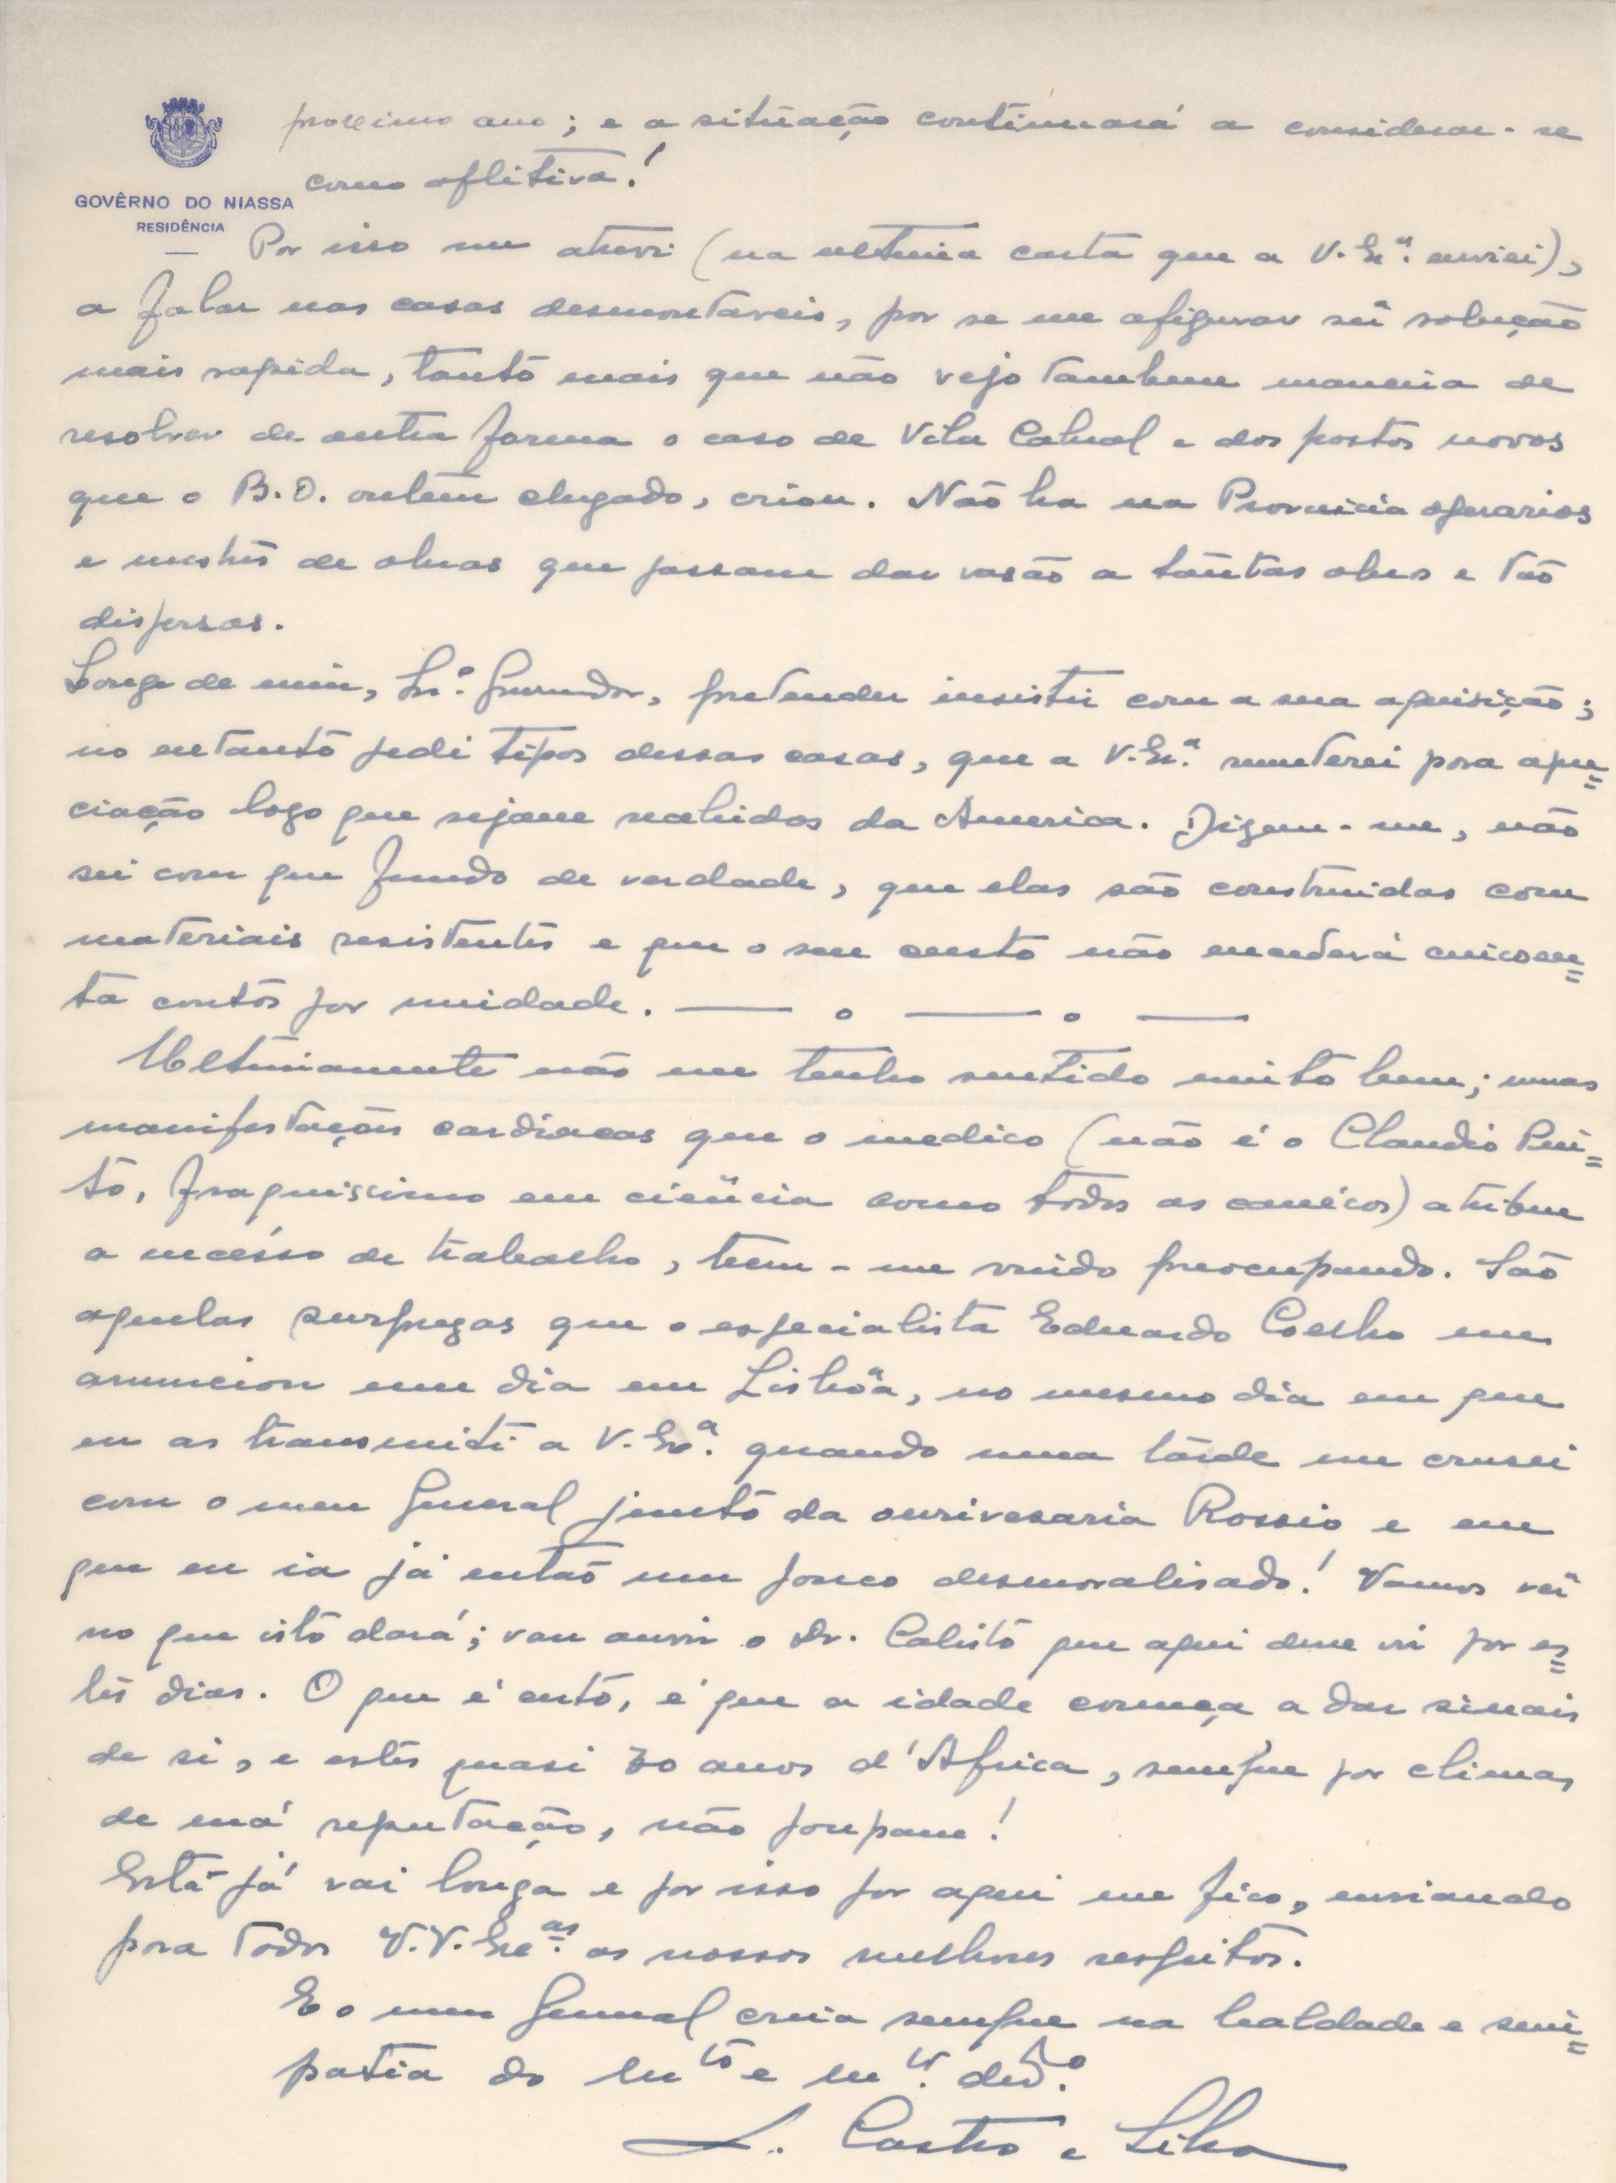 GOVÊRNO DO NIASSA
RESIDÊNCIA
proximo ano; e a situação continuará a considerar-se
como aflitiva!
Por isso me atrevi (na ultima carta que a V. Exª. enviei),
a falar nas casas desmontaveis, por se me afigurar sêr solução
mais rapida, tanto mais que não vejo tambem maneira de
resolver de outra forma o caso de Vila Cabral e dos postos novos
que o B.O. ontem chegado, criou. Não ha na Provincia operarios
e mestres de obras que possam dar vasão a tantas obras e tão
dispersas.
Longe de mim, Snr. Governador, pretender insistir com a sua aquisição;
no entanto pedi tipos dessas casas, que a V. Exª. remeterei para apre=
ciação logo que sejam recebidos da America. Dizem-me, não
sei com que fundo de verdade, que elas são construidas com
materiais resistentes e que o seu custo não excederá cincoen=
ta contos por unidade. — o — o —
Ultimamente não me tenho sentido muito bem; umas
manifestações cardiacas que o medico (não é o Claudio Pin=
to, fraquissimo em ciência como todos os) atribue
a excésso de trabalho, teem-me vindo preocupando. São
aquelas surprezas que o especialista Eduardo Coelho me
anunciou um dia em Lisbôa, no mesmo dia em que
eu as transmiti a V. Exª. quando uma tarde me crusei
com o meu General junto da ourivesaria Rossio e em
que eu ia já então um pouco desmoralisado! Vamos vêr
no que isto dará; vou ouvir o Dr. Calisto que aqui deve vir por es=
tes dias. O que é certo, é que a idade começa a dar sinais
de si, e estes quasi 30 anos d'Africa, sempre por climas
de má reputação, não poupam!
Esta já vai longa e por isso por aqui me fico, enviando
para todos V.V. Exªs. os nossos melhores respeitos.
E o meu General creia sempre na lealdade e sim=
patia do mto e mto. dedo.
L. Castro e Silva